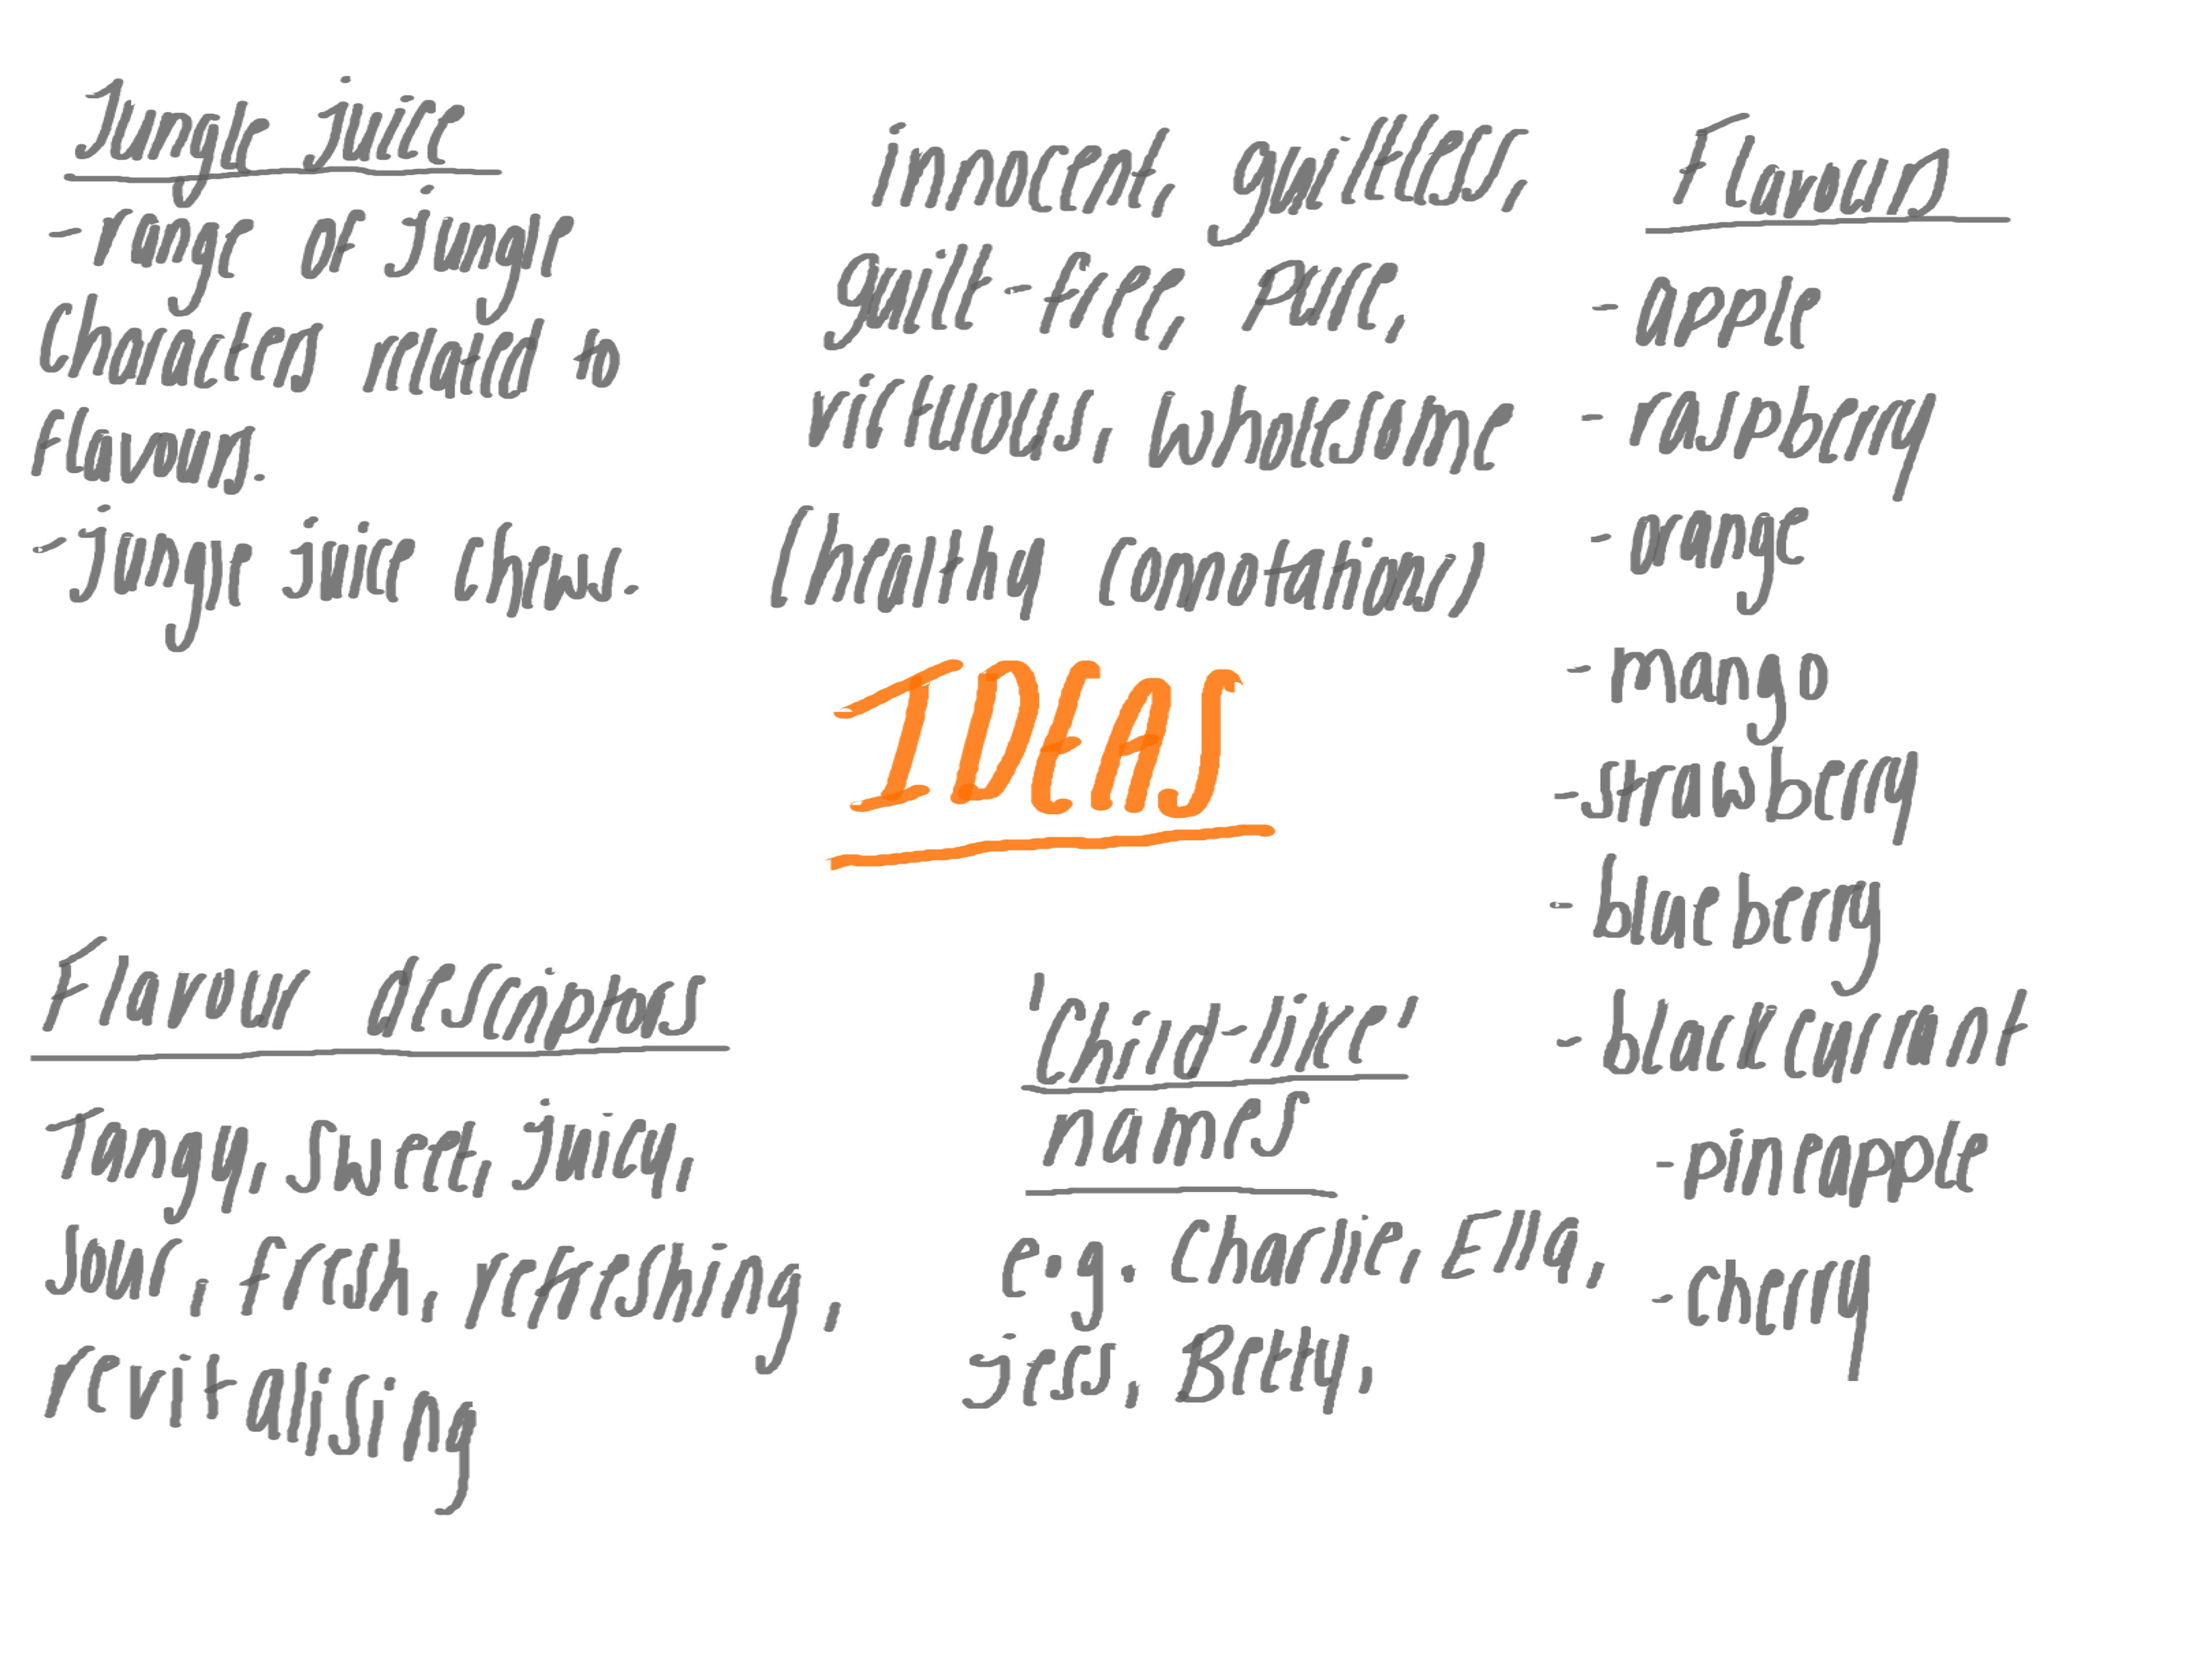 Jungle juice
- range of jungle
characters related to
flavours.
- jungle juice chews.
innocent, guiltless,
guilt-free, pure,
virtuous, wholesome
(healthy connotations)
Flavours
- apple
- raspberry
- orange
- mango
- strawberry
- blueberry
- blackcurrant
- pineapple
- cherry
IDEAS
Flavour descriptors
Tangy, sweet, juicy,
sour, fresh, refreshing,
revitalising
'Child-like'
names
e.g. Charlie, Ella,
Jess, Betty,